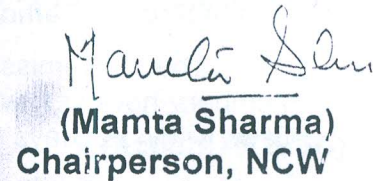 Mamta Sh
(Mamta Sharma)
Chairperson, NCW